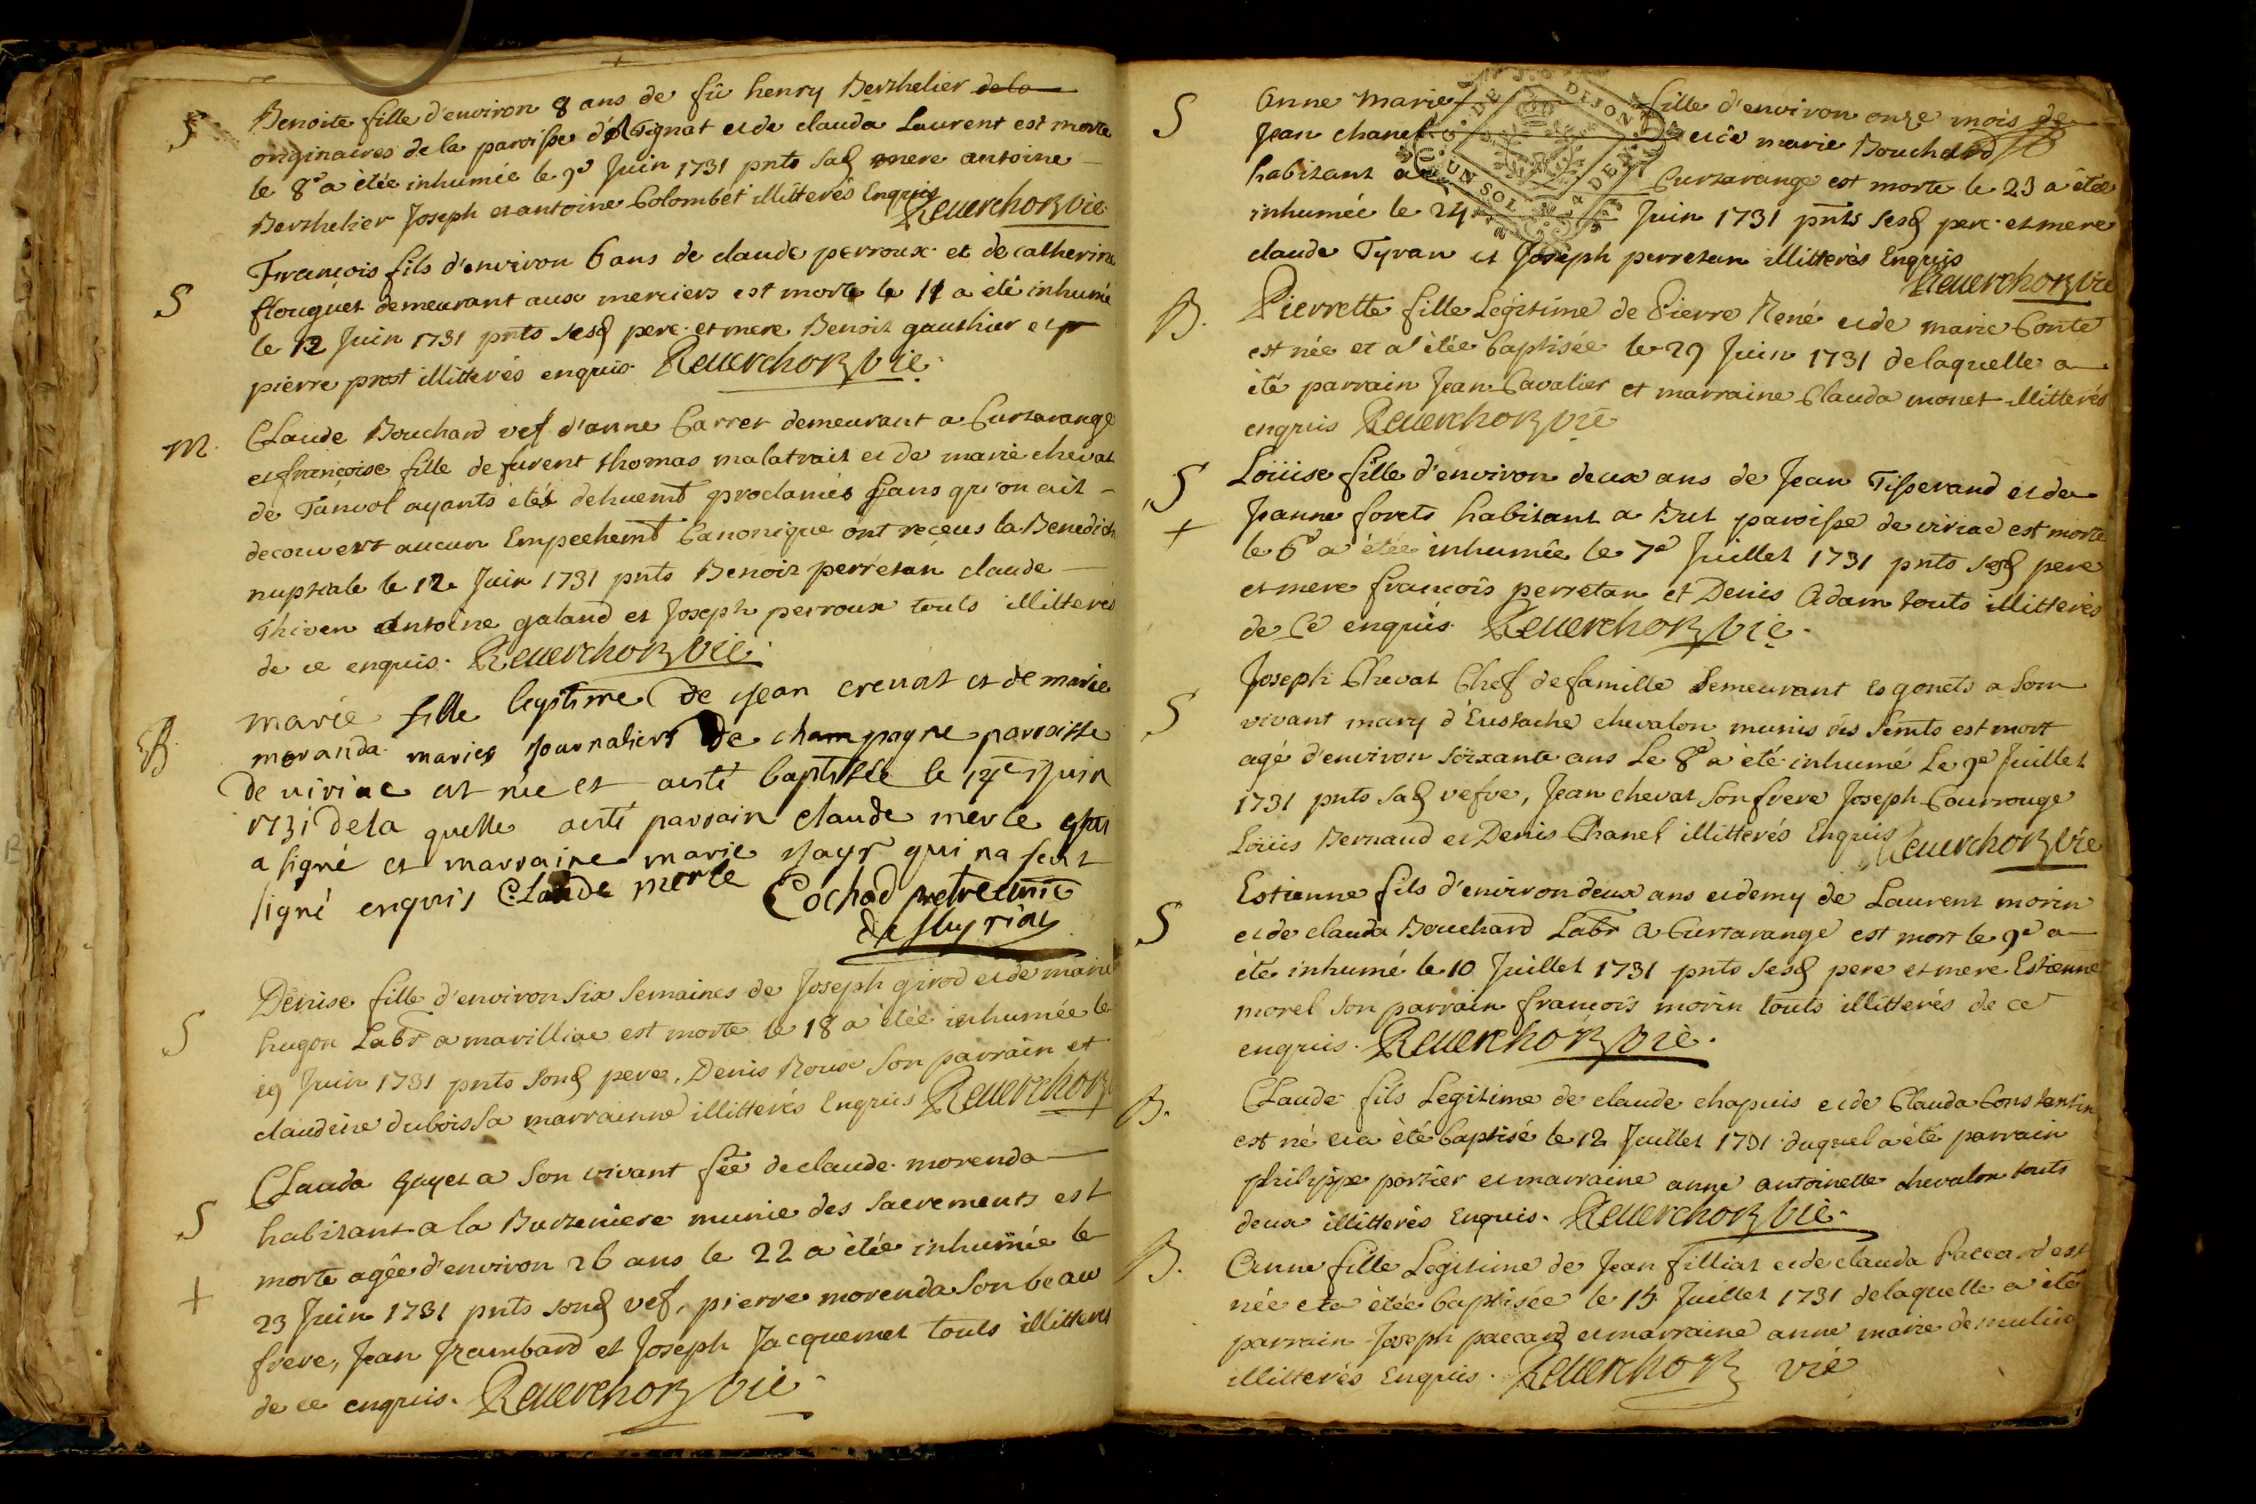 S
Benoite fille d'environ 8 ans de fû henry Berthelier de la
originaires de la paroisse d'Attignat et de clauda Laurent est morte
le 8e a étée inhumée le 9e Juin 1731 pnts sad mere antoine
Berthelier Joseph et antoine Colombet illitterés Enquis
Reverchon vic.
S
François fils d'environ 6 ans de claude perroux et de catherine
flouguet demeurant aux merciers est morte le 11 a été inhumé
le 12 Juin 1731 pnts sesd pere et mere Benoit gauthier et
pierre prost illitterés enquis. Reverchon vic.
M.
Claude Bouchard vef d'anne Carret demeurant a Curtarange
et françoise fille de furent thomas malatrait et de marie chevat
de Tanvol ayants étés dehuemt proclamés sans qu'on ait
decouvert aucun Empechemt Canonique ont receus la Benedicton
nuptiale le 12 Juin 1731 pnts Benoit perrétan claude
Thiven antoine galand et Joseph perroux touts illitterés
de ce enquis. Reverchon vic.
B.
marie fille legitime de jean crevat et de marie
moranda mariés journaliers de champagne parroisse
de viriac est née et aesté baptisée le 17e juin
1731 de la quelle aesté parrain claude merle qui
a signé et marraine marie jayr qui na sceut
signé enquis Claude merle Cochad pretre
S
Denise fille d'environ six semaines de Joseph girod et de marie
hugon Labr a marilliac est morte le 18 a étée inhumée le
19 Juin 1731 pnts sond pere, Denis Roux son parrain et
claudine dubois sa marrainne illitterés Enquis Reverchon
S
+
Clauda guyet a son vivant fêe de claude morenda
habitant a la Burteniere munie des sacrements est
morte agée d'environ 26 ans le 22 a étée inhumée le
23 Juin 1731 pnts sond vef, pierre morenda son beau
frere, Jean Frambard et Joseph Jacquemet touts illitterés
de ce enquis. Reverchon vic.
S
Anne Marie fille d'environ onze mois de
Jean chanel et de marie Bouchard
habitant a Curtarange est morte le 23 a étée
inhumée le 24 Juin 1731 pnts sesd pere et mere
claude Tyvan et Joseph perretan illitterés Enquis
Reverchon vic
G. DE DIJON
UN SOL 4 DEN.
B.
Pierrette fille Légitime de Pierre René et de marie Conte
est née et a étée baptisée le 29 Juin 1731 de laquelle a
été parrain Jean Cavalier et marraine Clauda monet illitterés
enquis Reverchon vic
S
+
Loüise fille d'environ deux ans de Jean Tisserand et de
Jeanne forets habitant a But paroisse de viriac est morte
le 6e a étée inhumée le 7e Juillet 1731 pnts sesd pere
et mere françois perretan et Denis Adam touts illitterés
de Ce enquis. Reverchon vic.
S
Joseph Chevat Chef de famille demeurant es gonets a son
vivant mary d'Eustache chevalon munis des semts est mort
agé d'environ soixante ans Le 8e a été inhumé Le 9e Juillet
1731 pnts sad vefve, Jean chevat son frere Joseph Courrouge
Loüis Bernaud et Denis Chanel illitterés Enquis Reverchon vic
S
Estienne fils d'environ deux ans et demy de Laurent morin
et de clauda Bouchard Labr a Curtarange est mort le 9e a
été inhumé le 10 Juillet 1731 pnts sesd pere et mere Estienne
morel son parrain françois morin touts illitterés de ce
enquis. Reverchon vic.
B.
Claude fils Legitime de claude chapuis et de Clauda Constantin
est né et a été baptisé le 12 Juillet 1731 duquel a été parrain
philippe portier et marraine anne antoinette chevalon touts
deux illitterés Enquis. Reverchon vic.
B.
Anne fille Legitime de Jean filliat et de clauda Paccard est
née et a étée baptisée le 15 Juillet 1731 de laquelle a été
parrain Joseph paccard et marraine anne marie demulin
illitterés Enquis. Reverchon vic